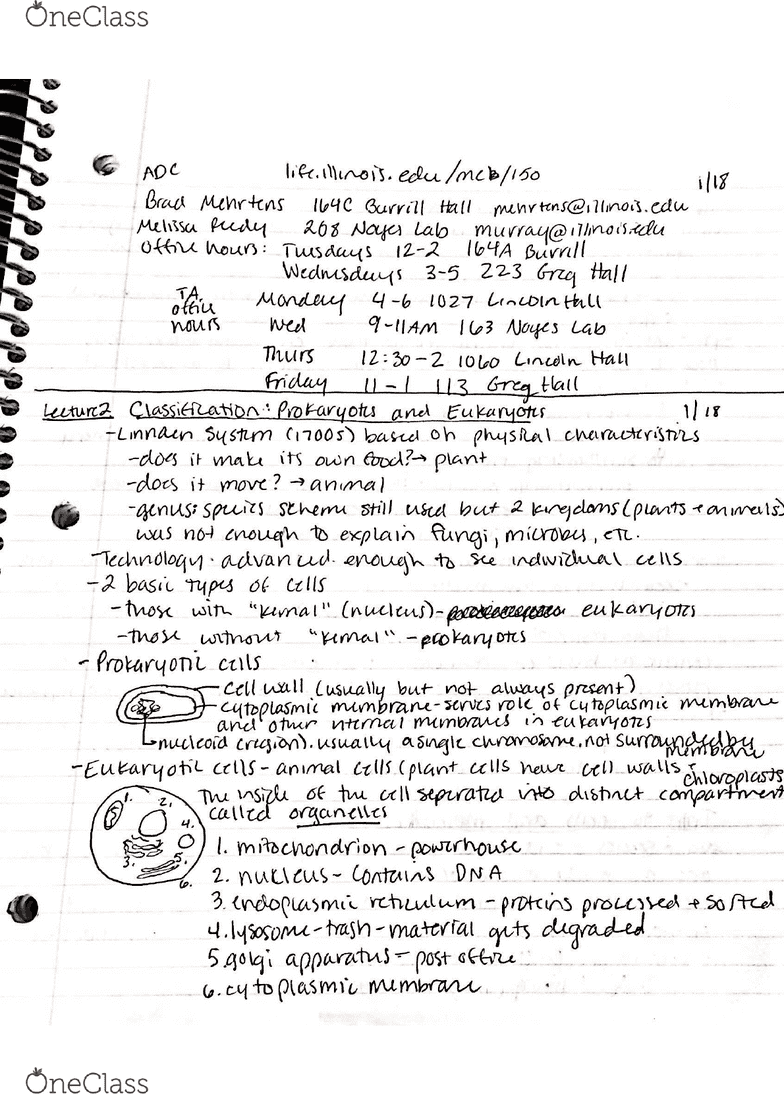 OneClass
ADC life.illinois.edu/mcb/150 1/18
Brad Mehrtens 164C Burrill Hall mehrtens@illinois.edu
Melissa Reedy 268 Noyes Lab murray@illinois.edu
Office hours: Tuesdays 12-2 164A Burrill
Wednesdays 3-5 223 Greg Hall
TA office hours Monday 4-6 1027 Lincoln Hall
Wed 9-11AM 163 Noyes Lab
Thurs 12:30-2 1060 Lincoln Hall
Friday 11-1 113 Greg Hall
Lecture 2 Classification: Prokaryotes and Eukaryotes 1/18
-Linnaen System (1700s) based on physical characteristics
-does it make its own food?→ plant
-does it move? → animal
-genus: species scheme still used but 2 kingdoms (plants + animals)
was not enough to explain fungi, microbes, etc.
-Technology advanced enough to see individual cells
-2 basic types of cells
-those with "kernal" (nucleus)- eukaryotes
-those without "kernal" -prokaryotes
- Prokaryotic cells
cell wall (usually but not always present)
cytoplasmic membrane-serves role of cytoplasmic membrane
and other internal membranes in eukaryotes
nucleoid (region). usually a single chromosome, not surrounded by
membrane
-Eukaryotic cells - animal cells (plant cells have cell walls +
chloroplasts
The inside of the cell seperated into distinct compartment
called organelles
1.
2.
4.
3.
5.
6.
1. mitochondrion - powerhouse
2. nucleus - contains DNA
3. endoplasmic reticulum - proteins processed + sorted
4. lysosome-trash-material gets degraded
5. golgi apparatus - post office
6. cytoplasmic membrane
OneClass